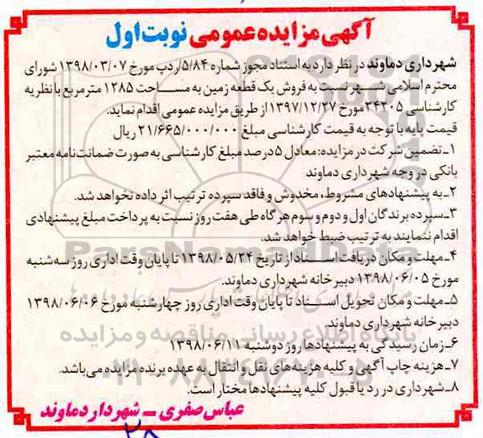 آگهی مزایده عمومی نوبت اول
شهرداری دماوند در نظر دارد به استناد مجوز شماره 5/84/ردپ مورخ 1398/03/07 شورای
محترم اسلامی شهر نسبت به فروش یک قطعه زمین به مساحت 1285 مترمربع با نظریه
کارشناسی 24205 مورخ 1397/12/27 از طریق مزایده عمومی اقدام نماید.
قیمت پایه با توجه به قیمت کارشناسی مبلغ 21/665/000/000 ریال
1-تضمین شرکت در مزایده: معادل 5 درصد مبلغ کارشناسی به صورت ضمانت نامه معتبر
بانکی در وجه شهرداری دماوند
2-به پیشنهادهای مشروط، مخدوش و فاقد سپرده ترتیب اثر داده نخواهد شد.
3-سپرده برندگان اول و دوم و سوم هرگاه طی هفت روز نسبت به پرداخت مبلغ پیشنهادی
اقدام ننمایند به ترتیب ضبط خواهد شد.
4-مهلت و مکان دریافت اسناد از تاریخ 1398/05/24 تا پایان وقت اداری روز سه شنبه
مورخ 1398/06/05 دبیرخانه شهرداری دماوند.
5-مهلت و مکان تحویل اسناد تا پایان وقت اداری روز چهارشنبه مورخ 1398/06/06
دبیرخانه شهرداری دماوند.
6-زمان رسیدگی به پیشنهادها روز دوشنبه 1398/06/11
7-هزینه چاپ آگهی و کلیه هزینه‌های نقل و انتقال به عهده برنده مزایده می‌باشد.
8-شهرداری در رد یا قبول کلیه پیشنهادها مختار است.
عباس صفری - شهردار دماوند
28